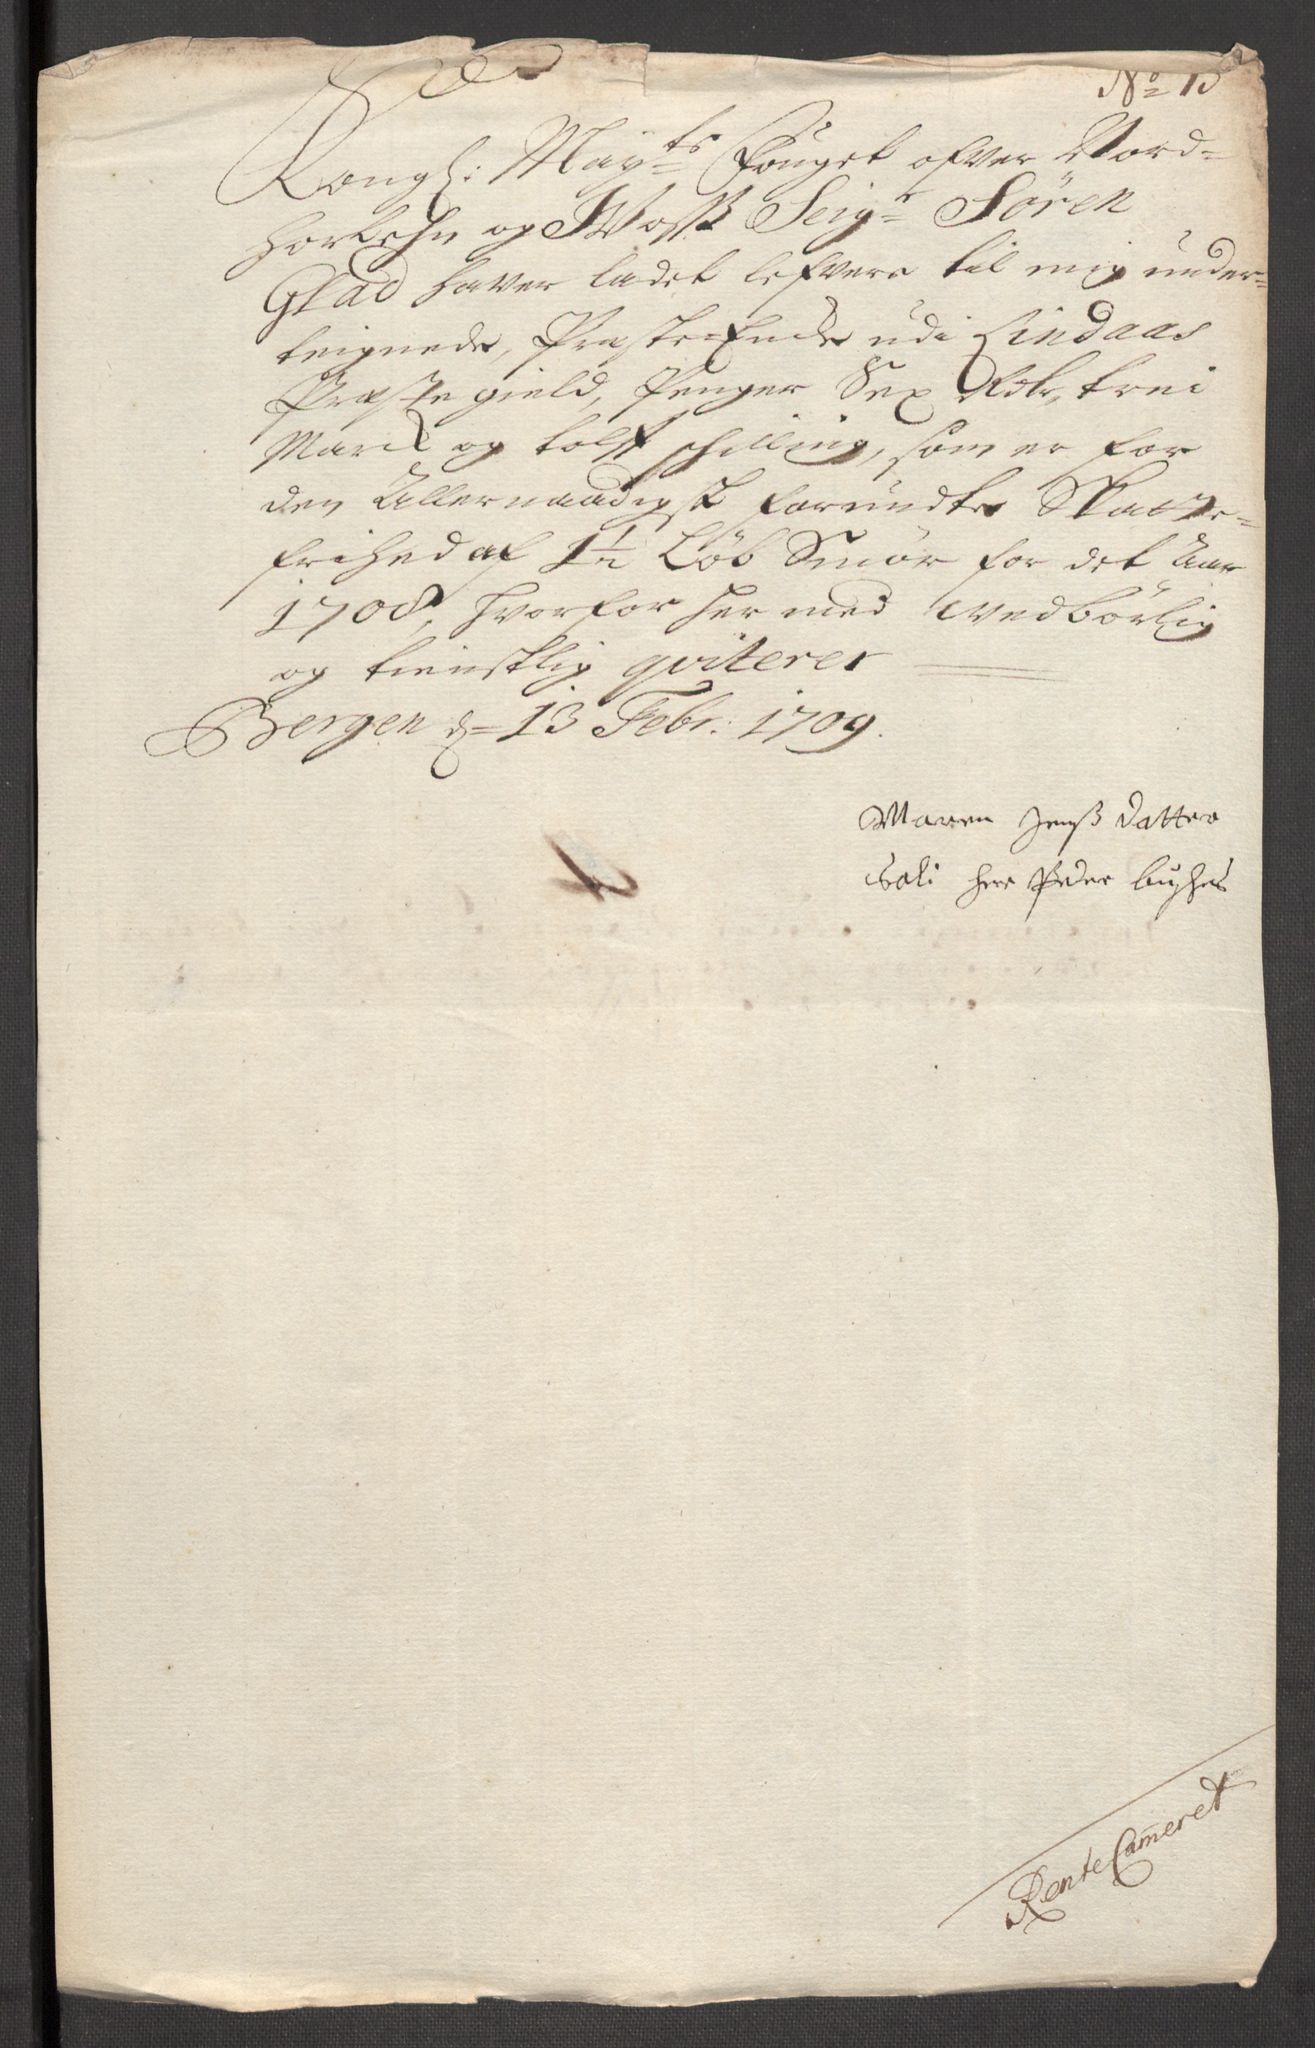 No 15
Kongl: Mayts Fouget ofver Nord-
horlehn og Woss Seigr Sören
Glad haver ladet lefvere til mig under-
teignede, Præste-Encke udi Lindaas
Præste gield, Penger Sex Rdlr, trei
Marck og tolf schilling, som er for
den Allernaadigst forundte Skatte-
frihed af 1½ Löb Smör for det Aar
1708, hvorfor her med vedbörlig
og tienstlig qviterer
Bergen d= 13 Febr: 1709.
Maren Jenß datter
Sali her Peder
RenteCameret